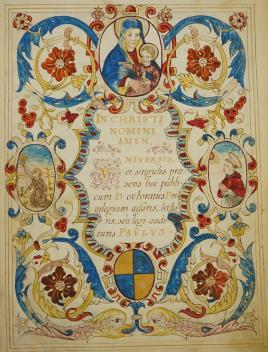 IN CHRISTI
NOMINE
AMEN.
VNIVERSIS,
et singulis præ
sens hoc publi
cum Doctoratus Pri
uilegium uisuris, lectu
ris, seu legi audi
turis PAVLVS